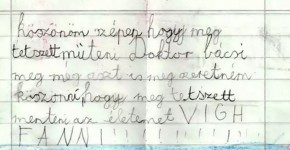 köszönöm szépen hogy meg
tetszett műteni Doktor bácsi
még meg aszt is meg szeretném
köszönni hogy meg tetszett
menteni az életemet VIGH
FANNI!!!!!!!!!!